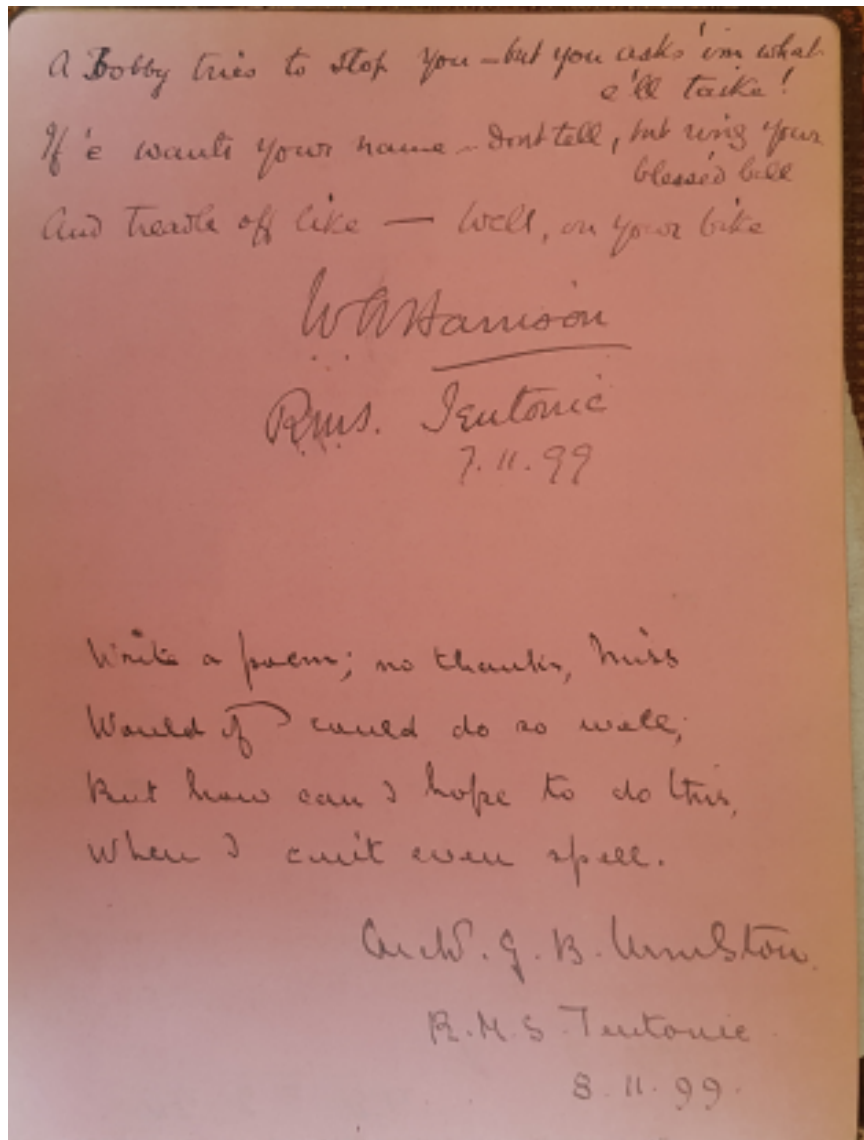 A Bobby tries to stop you – but you asks 'im what
e'll taike!
If 'e wants your name – dont tell, but ring your
blessed bell
And treadle off like — Well, on your bike
W A Harrison
R.M.S. Teutonic
7.11.99
Write a poem; no thanks, Miss
Would if I could do so well;
But how can I hope to do this,
When I can't even spell.
G. B.
R.M.S Teutonic
8.11.99.